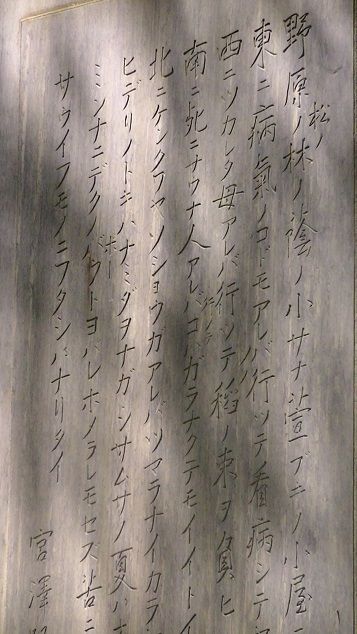 野原ノ松ノ林ノ蔭ノ小サナ萱ブキノ小屋
東ニ病氣ノコドモアレバ行ッテ看病シテ
西ニツカレタ母アレバ行ッテ稲ノ束ヲ負ヒ
南ニ死ニサウナ人アレバ行ッテコハガラナクテモイイトイ
北ニケンクヮヤソショウガアレバツマラナイカラ
ヒデリノトキハナミダヲナガシサムサノ夏ハ
ミンナニデクノボートヨバレホメラレモセズ苦ニ
サウイフモノニワタシハナリタイ
宮澤